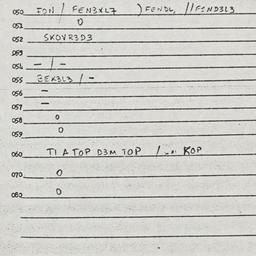 050 ION / FEN3XL7 ) FENDL, //FIND3L3
051 0
052 SKOVR3D3
053
054 - / -
055 3EX3L3 / -
056 -
057 -
058 0
059 0
060 TI A TOP D3M TOP / KOP
070 0
080 0